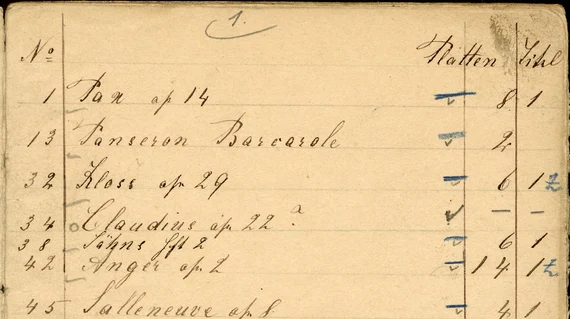 1.
No Platten Titel
1 Pax op 14 8 1
13 Panseron Barcarole 2
32 Kloss op 29 6 1
34 Claudius op 22 ? — —
38 Jähns Hft 2 6 1
42 Anger op 2 14 1
45 Salleneuve op 8 4 1